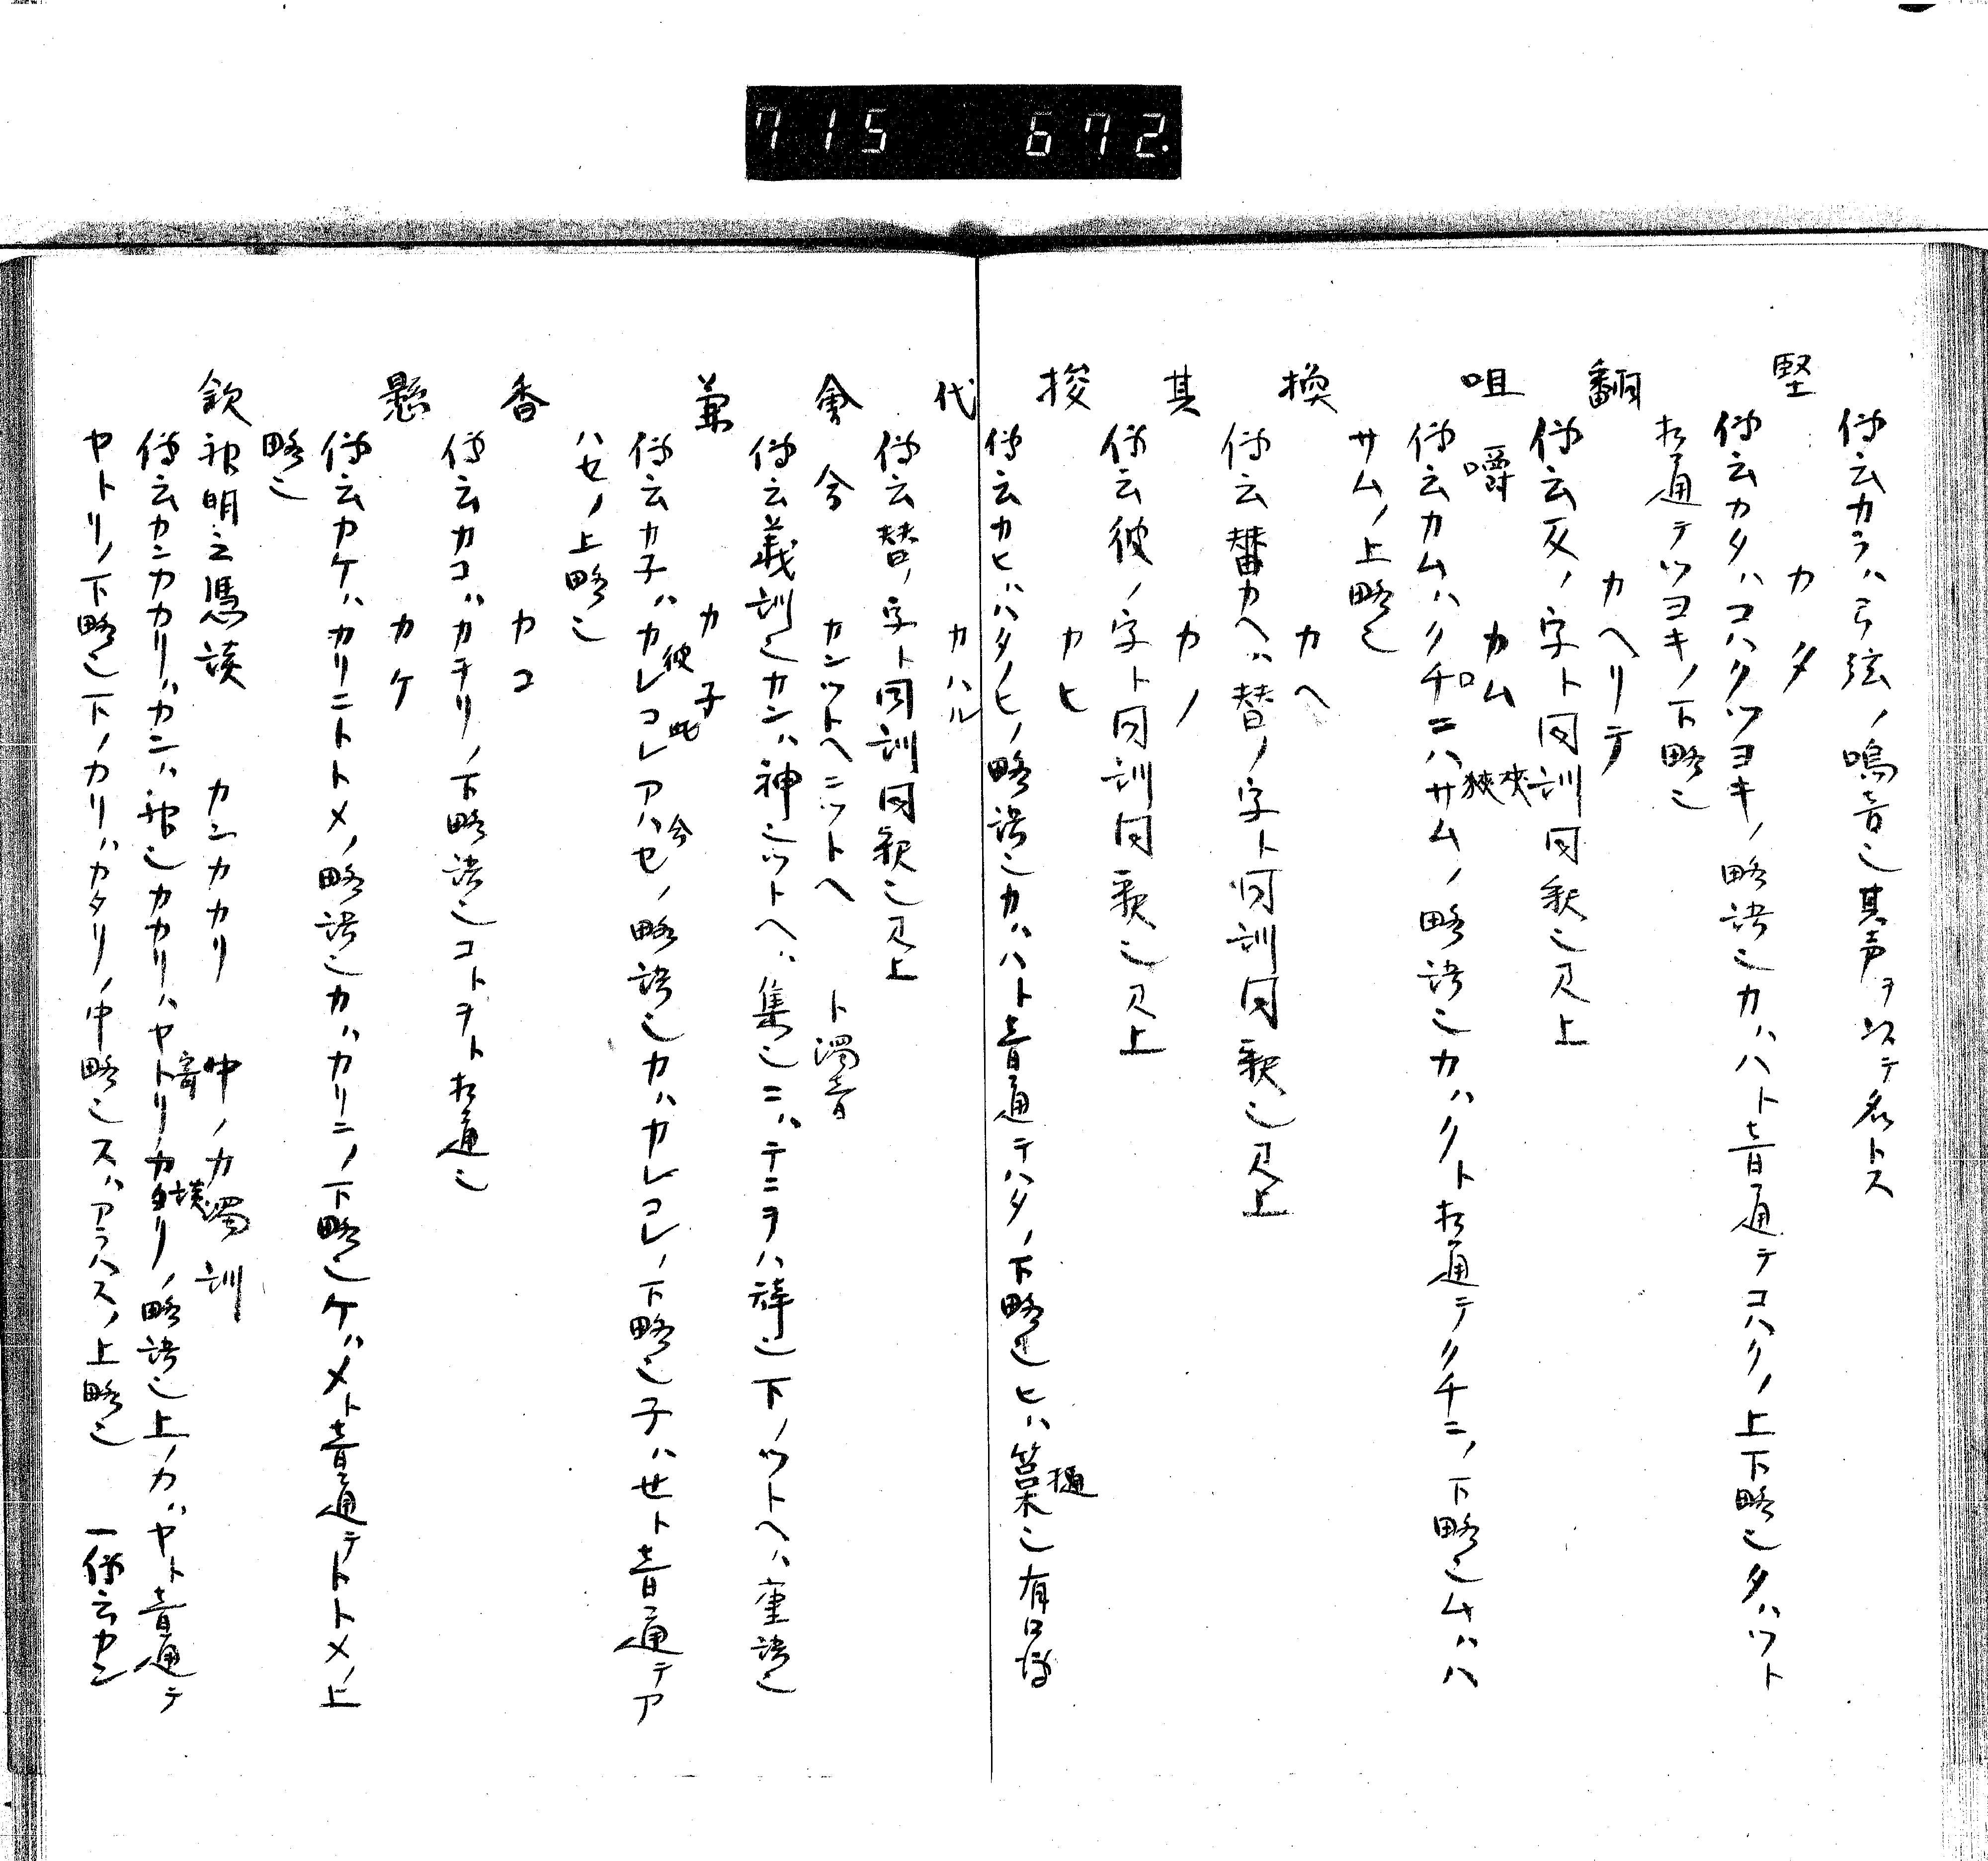 715 672.
傳云カラハ弓弦ノ鳴音也其声ヲ以テ名トス
堅 カタ
傳云カタハコハクツヨキノ略語也カハハト音通テコハクノ上下略也タハツト
相通テツヨキノ下略也
翻 カヘリテ
傳云反ノ字ト同訓同釈也见上
咀嚼 カム
傳云カムハクチ口ニハサム狹夾ノ略語也カハクト相通テクチニノ下略也ムハハ
サムノ上略也
換 カヘ
傳云替カヘハ替ノ字ト同訓同釈也见上
其 カノ
傳云彼ノ字ト同訓同釈也见上
カヒ
傳云カヒハハタノヒノ略語也カハハト音通テハタノ下略也ヒハ樋也有口傳
代 カハル
傳云替ノ字ト同訓同釈也见上
會合 カンツトヘニツトヘ ト濁音
傳云義訓也カンハ神也ツトヘハ集也ニハテニヲハ辞也下ノツトヘハ重語也
兼 カ子
傳云カ子ハカレ彼コレ此アハセ合ノ略語也カハカレコレノ下略也子ハセト音通テア
ハセノ上略也
香 カコ
傳云カコハカヲリノ下略語也コトヲト相通也
懸 カケ
傳云カケハカリニトトメノ略語也カハカリニノ下略也ケハメト音通テトトメノ上
略也
欽神明之憑談 カンカカリ 中ノカ濁訓
傳云カンカカリハカンハ神也カカリハヤトリ寄カタリ談ノ略語也上ノカハヤト音通テ
ヤトリノ下略也下ノカリハカタリノ中略也スハアラハスノ上略也 一傳云カン